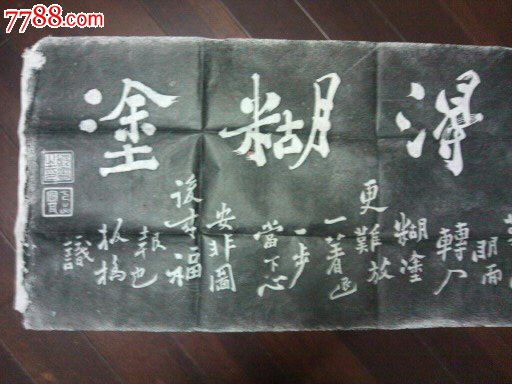 7788.com
得糊塗
明而
轉入
糊塗
更難放
一着退
一步
當下心
安非圖
後来福
報也
板橋
識